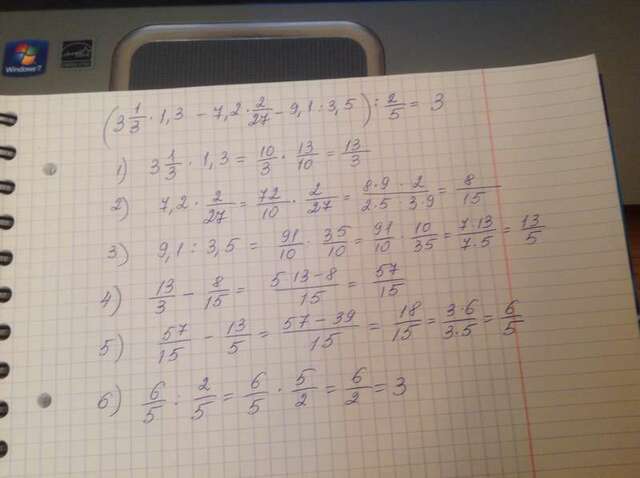 Windows 7
(3 1/3 · 1,3 - 7,2 · 2/27 - 9,1 : 3,5) : 2/5 = 3
1) 3 1/3 · 1,3 = 10/3 · 13/10 = 13/3
2) 7,2 · 2/27 = 72/10 · 2/27 = 8·9·2/2·5·3·9 = 8/15
3) 9,1 : 3,5 = 91/10 : 35/10 = 91/10 · 10/35 = 7·13/7·5 = 13/5
4) 13/3 - 8/15 = 5·13-8/15 = 57/15
5) 57/15 - 13/5 = 57-39/15 = 18/15 = 3·6/3·5 = 6/5
6) 6/5 : 2/5 = 6/5 · 5/2 = 6/2 = 3